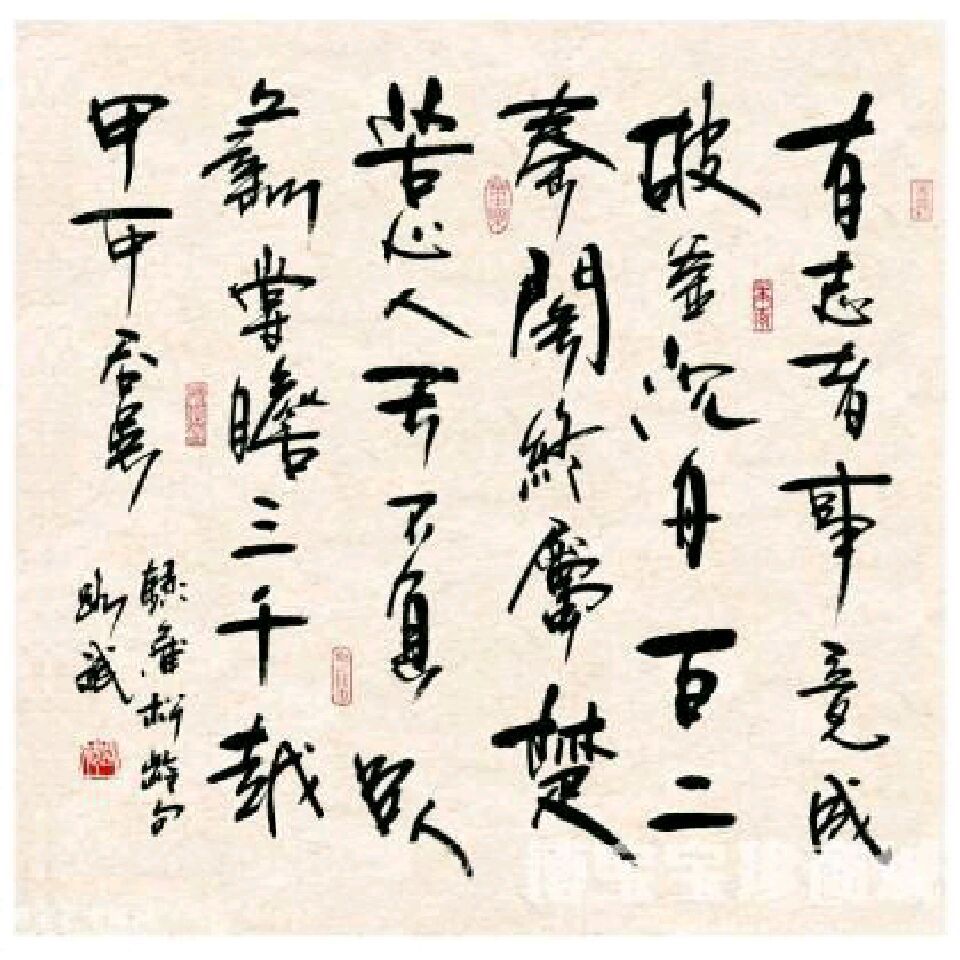 有志者事竟成
破釜沉舟百二
秦關終屬楚
苦心人天不負臥
薪嘗膽三千越
甲可吞吳
錄蒲松齡句